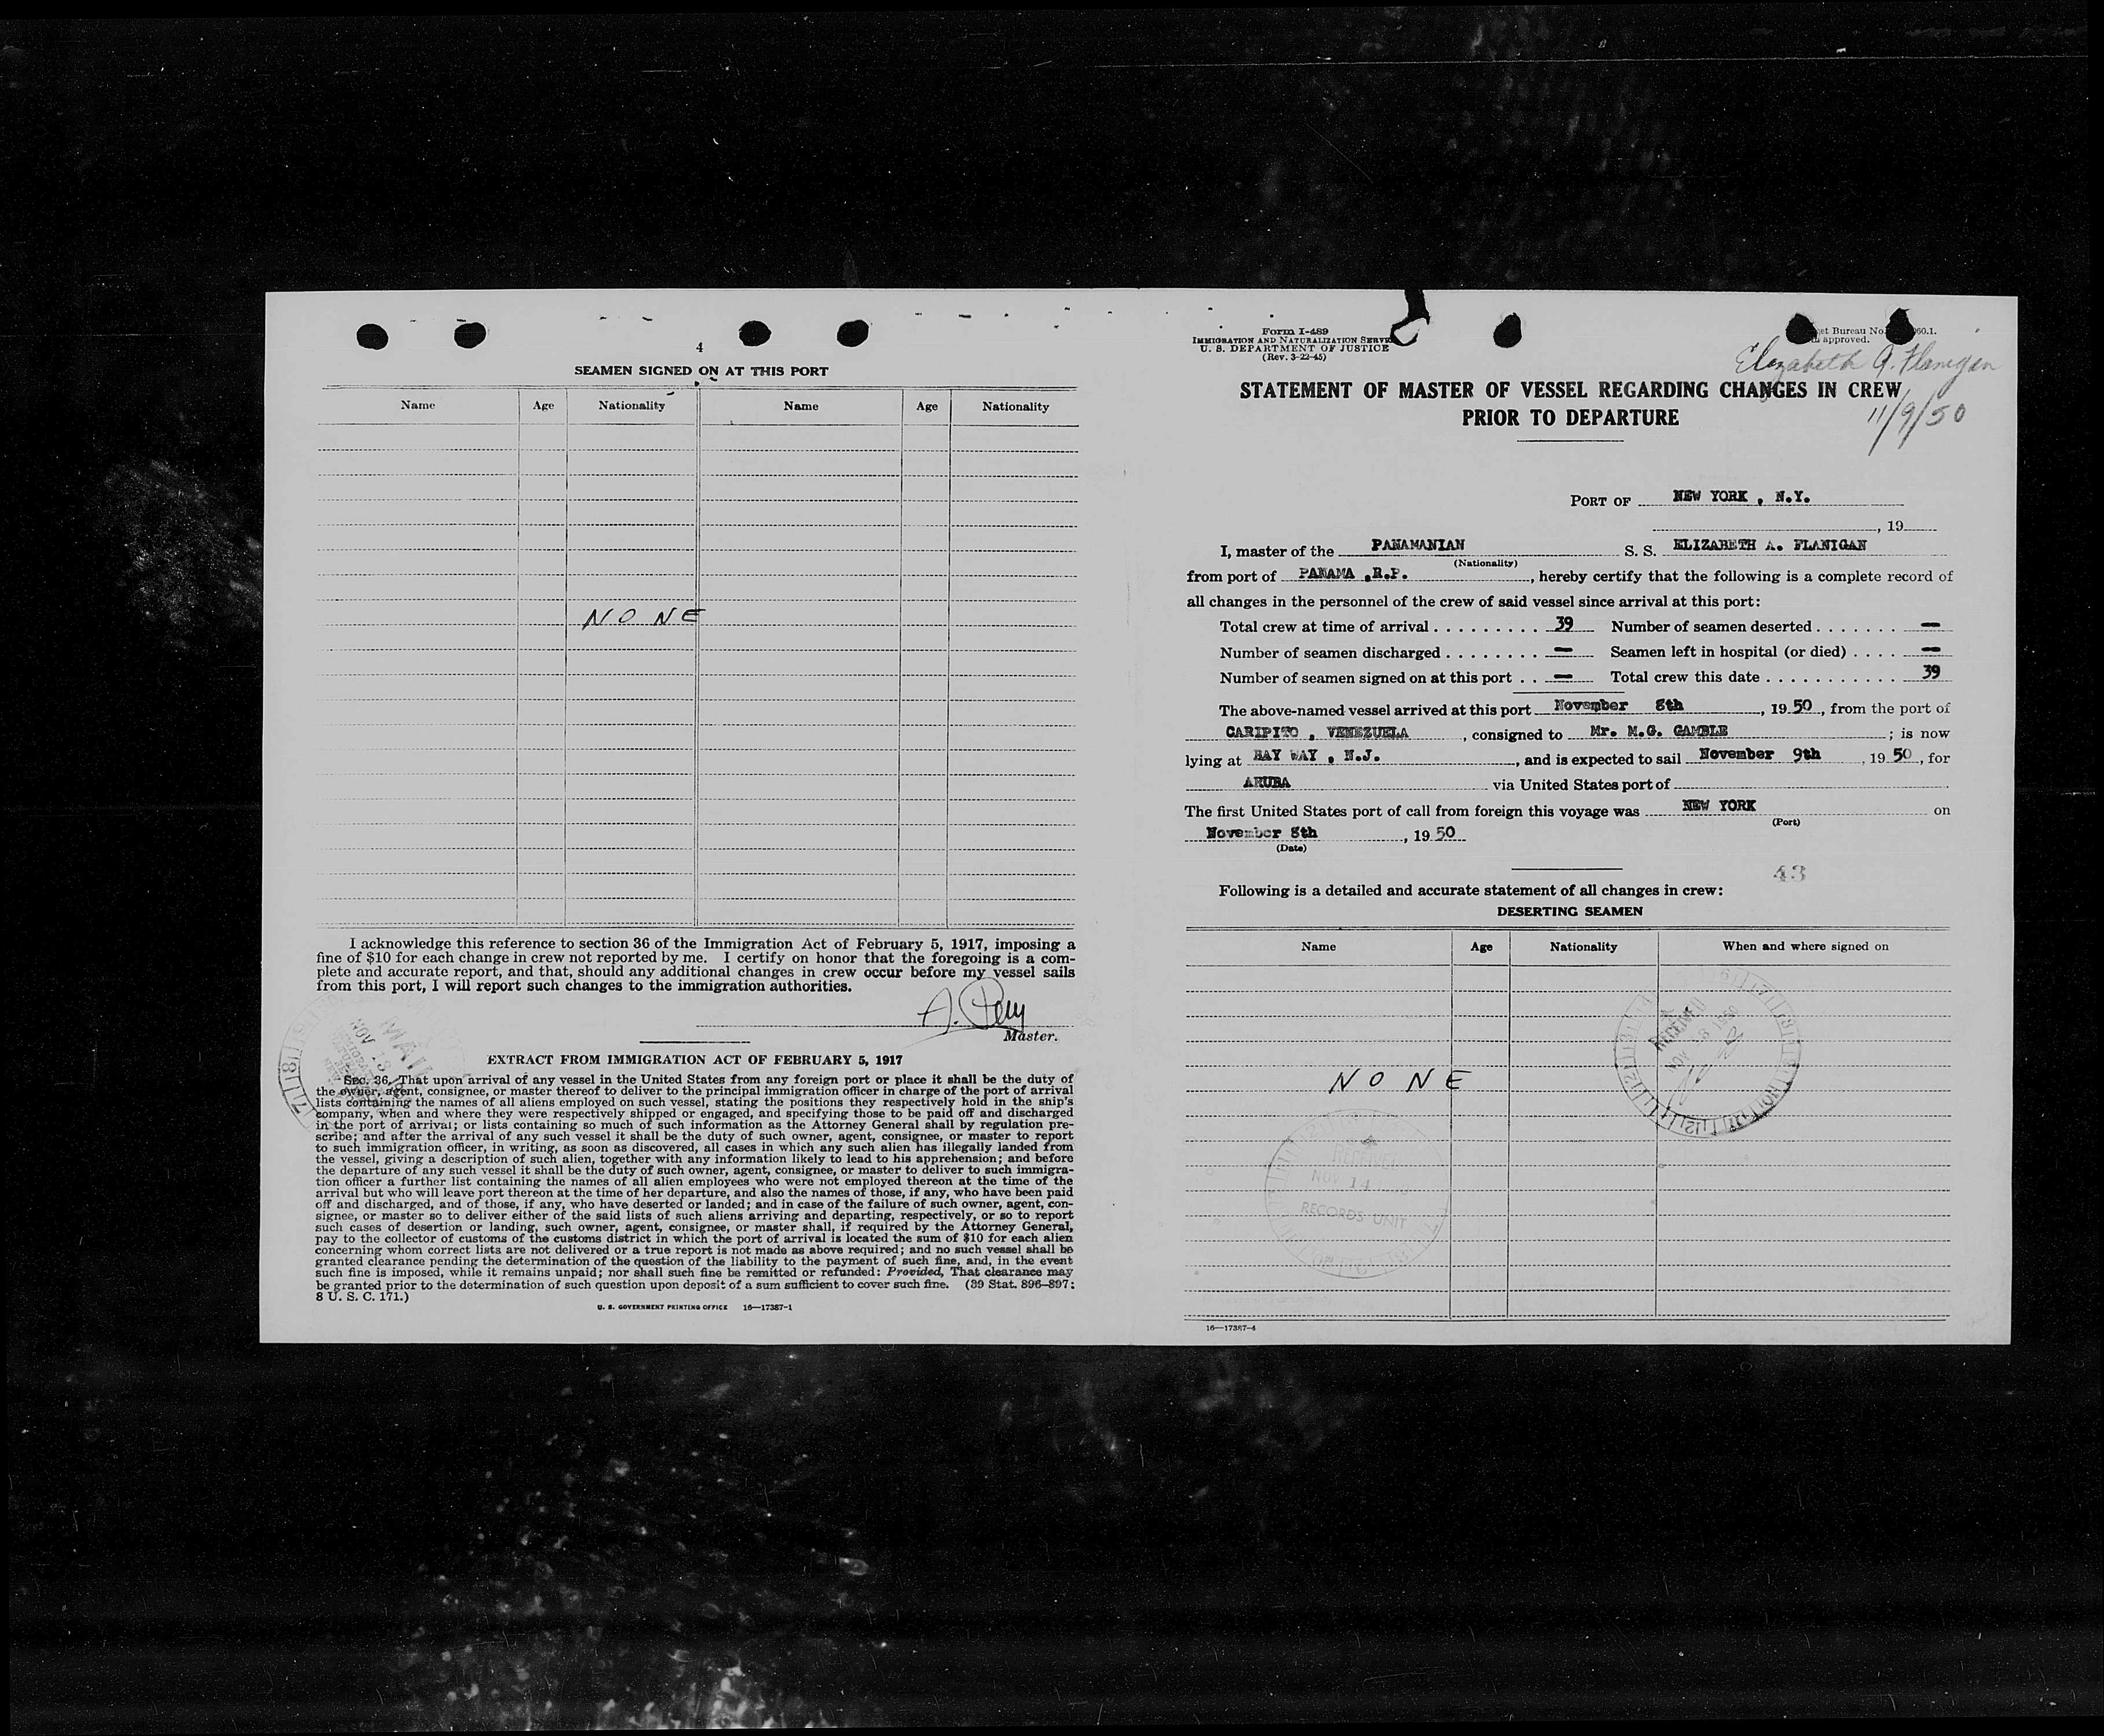 4
SEAMEN SIGNED ON AT THIS PORT
Name Age Nationality Name Age Nationality
NONE
I acknowledge this reference to section 36 of the Immigration Act of February 5, 1917, imposing a
fine of $10 for each change in crew not reported by me. I certify on honor that the foregoing is a com-
plete and accurate report, and that, should any additional changes in crew occur before my vessel sails
from this port, I will report such changes to the immigration authorities.
A.
Master.
EXTRACT FROM IMMIGRATION ACT OF FEBRUARY 5, 1917
SEC. 36. That upon arrival of any vessel in the United States from any foreign port or place it shall be the duty of
the owner, agent, consignee, or master thereof to deliver to the principal immigration officer in charge of the port of arrival
lists containing the names of all aliens employed on such vessel, stating the positions they respectively hold in the ship's
company, when and where they were respectively shipped or engaged, and specifying those to be paid off and discharged
in the port of arrival; or lists containing so much of such information as the Attorney General shall by regulation pre-
scribe; and after the arrival of any such vessel it shall be the duty of such owner, agent, consignee, or master to report
to such immigration officer, in writing, as soon as discovered, all cases in which any such alien has illegally landed from
the vessel, giving a description of such alien, together with any information likely to lead to his apprehension; and before
the departure of any such vessel it shall be the duty of such owner, agent, consignee, or master to deliver to such immigra-
tion officer a further list containing the names of all alien employees who were not employed thereon at the time of the
arrival but who will leave port thereon at the time of her departure, and also the names of those, if any, who have been paid
off and discharged, and of those, if any, who have deserted or landed; and in case of the failure of such owner, agent, con-
signee, or master so to deliver either of the said lists of such aliens arriving and departing, respectively, or so to report
such cases of desertion or landing, such owner, agent, consignee, or master shall, if required by the Attorney General,
pay to the collector of customs of the customs district in which the port of arrival is located the sum of $10 for each alien
concerning whom correct lists are not delivered or a true report is not made as above required; and no such vessel shall be
granted clearance pending the determination of the question of the liability to the payment of such fine, and, in the event
such fine is imposed, while it remains unpaid; nor shall such fine be remitted or refunded: Provided, That clearance may
be granted prior to the determination of such question upon deposit of a sum sufficient to cover such fine. (39 Stat. 896-897;
8 U. S. C. 171.)
U. S. GOVERNMENT PRINTING OFFICE 16—17387-1
MAIL
NOV 13
Form I-489
IMMIGRATION AND NATURALIZATION
U. S. DEPARTMENT OF JUSTICE
(Rev. 3-22-45)
Bureau No. 60.1.
approved.
Elizabeth A. Flanigan
STATEMENT OF MASTER OF VESSEL REGARDING CHANGES IN CREW
PRIOR TO DEPARTURE
11/9/50
PORT OF NEW YORK , N.Y.
, 19
I, master of the PANAMANIAN S. S. ELIZABETH A. FLANIGAN
(Nationality)
from port of PANAMA ,R.P. , hereby certify that the following is a complete record of
all changes in the personnel of the crew of said vessel since arrival at this port:
Total crew at time of arrival . . . . . . . . . 39 Number of seamen deserted . . . . . . . —
Number of seamen discharged . . . . . . . . — Seamen left in hospital (or died) . . . . —
Number of seamen signed on at this port . . — Total crew this date . . . . . . . . . . . . 39
The above-named vessel arrived at this port November 8th , 19 50 , from the port of
CARIPITO , VENEZUELA , consigned to Mr. M.G. GAMBLE ; is now
lying at BAY WAY , N.J. , and is expected to sail November 9th , 19 50 , for
ARUBA via United States port of
The first United States port of call from foreign this voyage was NEW YORK on
(Port)
November 8th , 19 50
(Date)
43
Following is a detailed and accurate statement of all changes in crew:
DESERTING SEAMEN
Name Age Nationality When and where signed on
RECEIVED
NONE
RECEIVED
NOV 14
RECORDS UNIT
16—17387-4